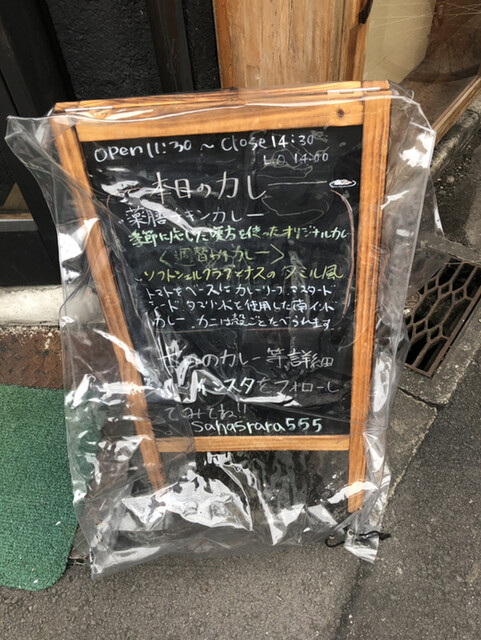 open 11:30 ~ close 14:30
L.O 14:00
本日のカレー
薬膳チキンカレー
季節に応じた漢方を使ったオリジナルカレー
〈週替わりカレー〉
ソフトシェルクラブマサラのタミル風
トマトをベースにカレーリーフ、マスタード
ード タマリンドを使用した南インド
カレー カニは殻ごとたべられます
のカレー等詳細
インスタをフォローし
てみてね!!
sahasrara555